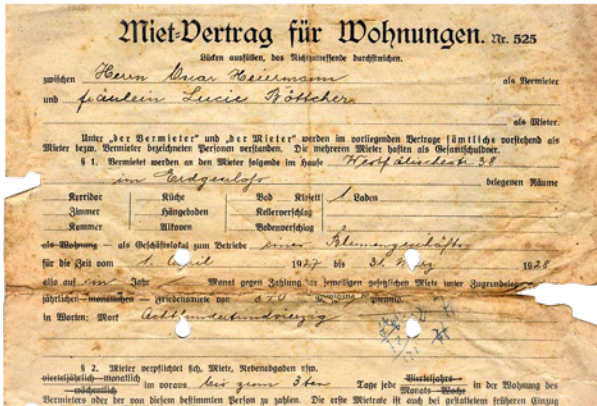 Miet-Vertrag für Wohnungen. Nr. 525
Lücken ausfüllen, das Nichtzutreffende durchstreichen.
zwischen Herrn Oscar Heiermann als Vermieter
und Fräulein Lucie Böttcher
als Mieter.
Unter „der Vermieter" und „der Mieter" werden im vorliegenden Vertrage sämtliche vorstehend als
Mieter bezw. Vermieter bezeichneten Personen verstanden. Die mehreren Mieter haften als Gesamtschuldner.
§ 1. Vermietet werden an den Mieter folgende im Hause Westfälischestr. 38
im Erdgeschoss belegenen Räume
Korridor Küche Bad Klosett 1 Laden
Zimmer Hängeboden Kellerverschlag
Kammer Alkoven Bodenverschlag
als Wohnung — als Geschäftslokal zum Betriebe eines Blumengeschäfts
für die Zeit vom 1. April 1927 bis 31. März 1928
also auf ein Jahr Monat gegen Zahlung der jeweiligen gesetzlichen Miete unter Zugrundelegung
jährlichen — monatlichen — Friedensmiete von Pfennig.
in Worten: Mark Achthundertundvierzig
§ 2. Mieter verpflichtet sich, Miete, Nebenabgaben usw.
vierteljährlich monatlich
wöchentlich im voraus bis zum 3ten Tage jede Vierteljahrs-
Monats-Woche in der Wohnung des
Vermieters oder der von diesem bestimmten Person zu zahlen. Die erste Mietrate ist auch bei gestattetem früheren Einzug